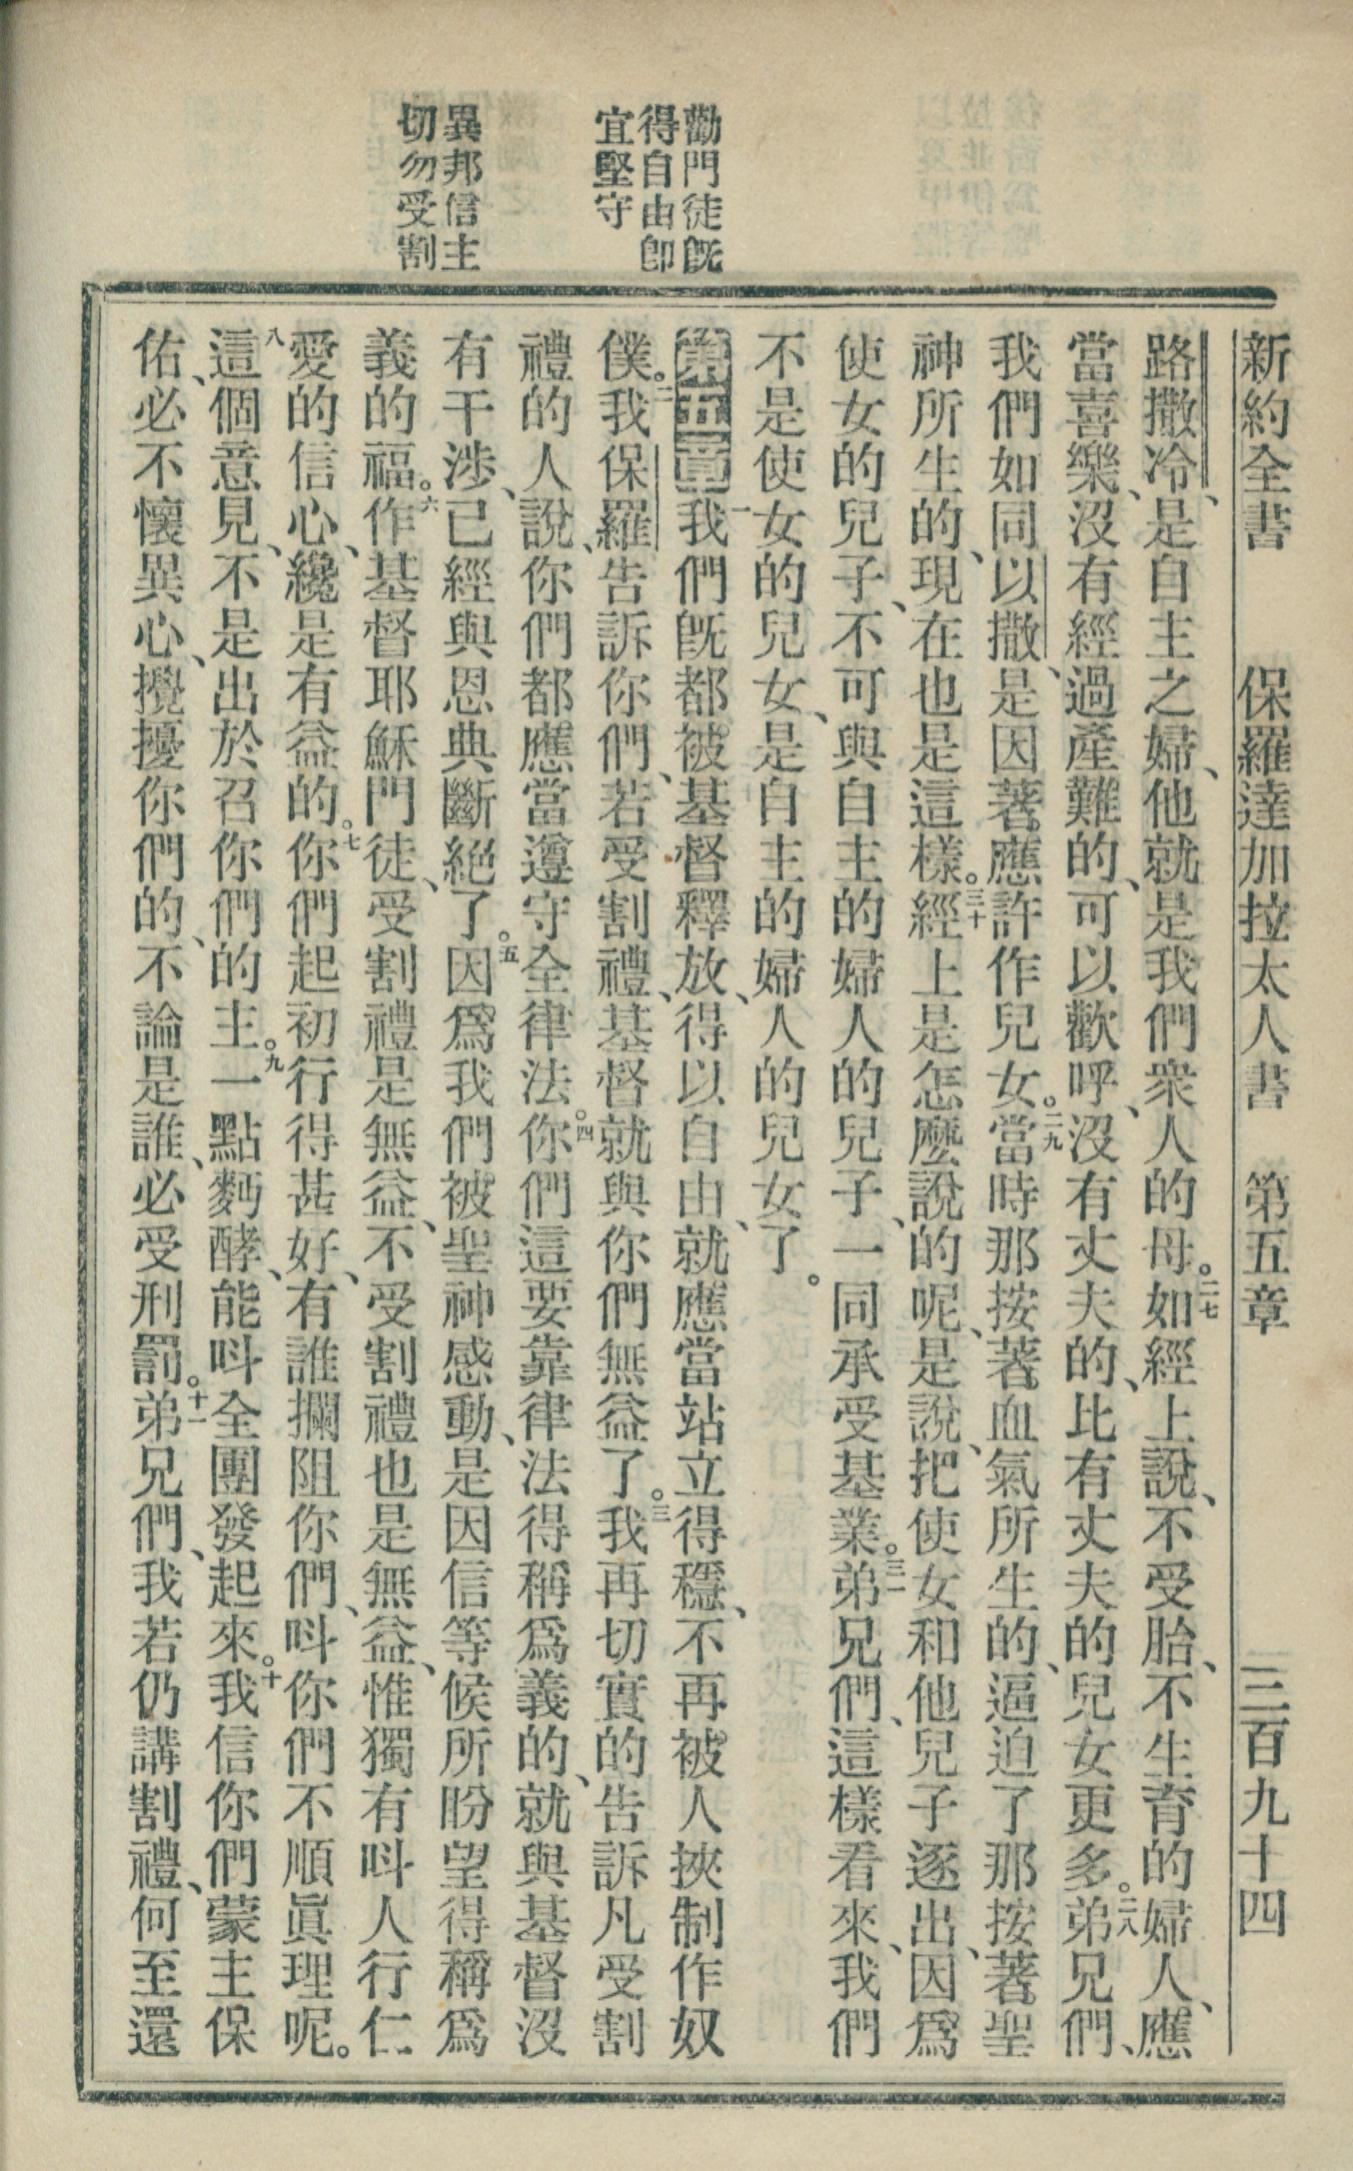 新約全書　保羅達加拉太人書　第五章　三百九十四
路撒冷、是自主之婦、他就是我們衆人的母。二七如經上說、不受胎、不生育的婦人、應
當喜樂、沒有經過產難的、可以歡呼、沒有丈夫的、比有丈夫的兒女更多。二八弟兄們、
我們如同以撒、是因著應許作兒女。二九當時那按著血氣所生的、逼迫了那按著聖
神所生的、現在也是這樣。三十經上是怎麼說的呢、是說、把使女和他兒子逐出、因爲
使女的兒子、不可與自主的婦人的兒子、一同承受基業。三一弟兄們、這樣看來、我們
不是使女的兒女、是自主的婦人的兒女了。
勸門徒既
得自由即
宜堅守
第五章一我們既都被基督釋放、得以自由、就應當站立得穩、不再被人挾制作奴
僕。二我保羅告訴你們、若受割禮、基督就與你們無益了。三我再切實的告訴凡受割
禮的人說、你們都應當遵守全律法。四你們這要靠律法得稱爲義的、就與基督沒
有干涉、已經與恩典斷絕了。五因爲我們被聖神感動、是因信等候所盼望得稱爲
異邦信主
切勿受割
義的福。六作基督耶穌門徒、受割禮是無益、不受割禮也是無益、惟獨有呌人行仁
愛的信心、纔是有益的。七你們起初行得甚好、有誰攔阻你們、呌你們不順眞理呢。
八這個意見、不是出於召你們的主。九一點麪酵、能呌全團發起來。十我信你們蒙主保
佑、必不懷異心、攪擾你們的、不論是誰、必受刑罰。十一弟兄們、我若仍講割禮、何至還